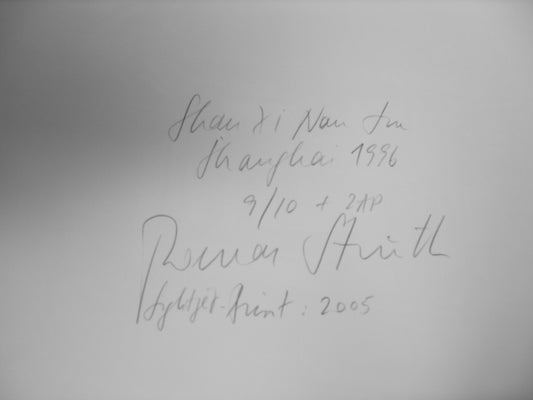 Shan Xi Nan Lu
Shanghai 1996
9/10 + 2AP
Thomas Struth
Lightjet-Print: 2005